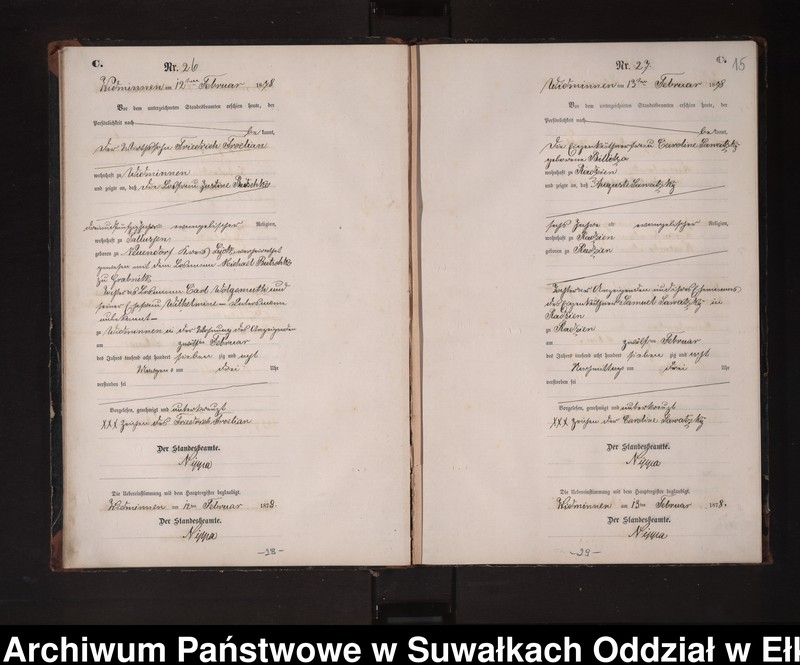 C.
Nr. 26
Widminnen am 12ten Februar 1878
Vor dem unterzeichneten Standesbeamten erschien heute, der
Persönlichkeit nach
bekannt,
der Friedrich Troelian
wohnhaft zu Widminnen
und zeigte an, daß die Losfrau Justine
evangelischer Religion,
wohnhaft zu
geboren zu Kreis Lyck, verheirathet
gewesen mit dem Losmann Michael
zu Grabnick
Tochter des Losmann Carl und
seiner Ehefrau Wilhelmine
unbekannt
zu Widminnen in der Wohnung des Anzeigenden
am zwölften Februar
des Jahres tausend acht hundert siebenzig und acht
Morgens um drei Uhr
verstorben sei
Vorgelesen, genehmigt und unterkreuzt
XXX Zeichen des Friedrich Troelian
Der Standesbeamte.
Die Uebereinstimmung mit dem Hauptregister beglaubigt.
Widminnen am 12ten Februar 1878.
Der Standesbeamte.
–28–
C. 15
Nr. 27
Widminnen am 13ten Februar 1878
Vor dem unterzeichneten Standesbeamten erschien heute, der
Persönlichkeit nach
bekannt,
die Eigenkäthnerfrau Caroline Sawatzky
geborene
wohnhaft zu Radzien
und zeigte an, daß Auguste Sawatzky
sechs Jahre alt evangelischer Religion,
wohnhaft zu Radzien
geboren zu Radzien
Tochter der Anzeigenden und ihres Ehemannes
des Eigenkäthners Samuel Sawatzky in
Radzien
zu Radzien
am zwölften Februar
des Jahres tausend acht hundert siebenzig und acht
Nachmittags um drei Uhr
verstorben sei
Vorgelesen, genehmigt und unterkreuzt
XXX Zeichen der Caroline Sawatzky
Der Standesbeamte.
Die Uebereinstimmung mit dem Hauptregister beglaubigt.
Widminnen am 13ten Februar 1878.
Der Standesbeamte.
–29–
Archiwum Państwowe w Suwałkach Oddział w Ełk